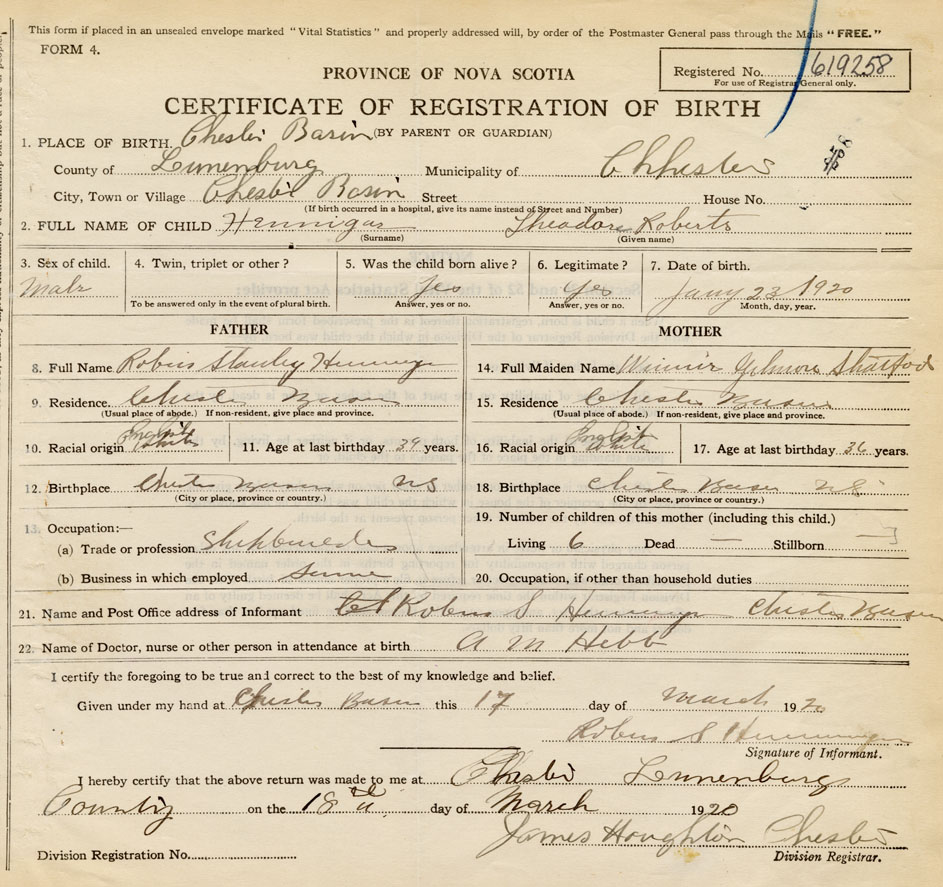 This form if placed in an unsealed envelope marked "Vital Statistics" and properly addressed will, by order of the Postmaster General pass through the Mails "FREE."
FORM 4.
Registered No. 619258
For use of Registrar General only.
PROVINCE OF NOVA SCOTIA
CERTIFICATE OF REGISTRATION OF BIRTH
(BY PARENT OR GUARDIAN)
1. PLACE OF BIRTH. Chester Basin
County of Lunenburg Municipality of Chester
City, Town or Village Chester Basin Street House No.
(If birth occurred in a hospital, give its name instead of Street and Number)
2. FULL NAME OF CHILD Hennigar Theodore Roberts
(Surname) (Given name)
3. Sex of child. 4. Twin, triplet or other? 5. Was the child born alive? 6. Legitimate? 7. Date of birth.
Male yes yes Jany 23 1920
To be answered only in the event of plural birth. Answer, yes or no. Answer, yes or no. Month, day, year.
FATHER MOTHER
8. Full Name Robins Stanley Hennigar 14. Full Maiden Name Winnie Gilmore Shatford
9. Residence. Chester Basin 15. Residence Chester Basin
(Usual place of abode.) If non-resident, give place and province. (Usual place of abode.) If non-resident, give place and province.
10. Racial origin English White 11. Age at last birthday 39 years. 16. Racial origin English White 17. Age at last birthday 36 years.
12. Birthplace Chester Basin NS 18. Birthplace Chester Basin NS
(City or place, province or country.) (City or place, province or country.)
13. Occupation:— 19. Number of children of this mother (including this child.)
(a) Trade or profession Shipbuilder Living 6 Dead — Stillborn —
(b) Business in which employed same 20. Occupation, if other than household duties
21. Name and Post Office address of Informant Robins S Hennigar Chester Basin
22. Name of Doctor, nurse or other person in attendance at birth A M Hebb
I certify the foregoing to be true and correct to the best of my knowledge and belief.
Given under my hand at Chester Basin this 17 day of March 1920
Robins S Hennigar
Signature of Informant.
I hereby certify that the above return was made to me at Chester Lunenburg
County on the 18th day of March 1920
James Houghton Chester
Division Registration No. Division Registrar.